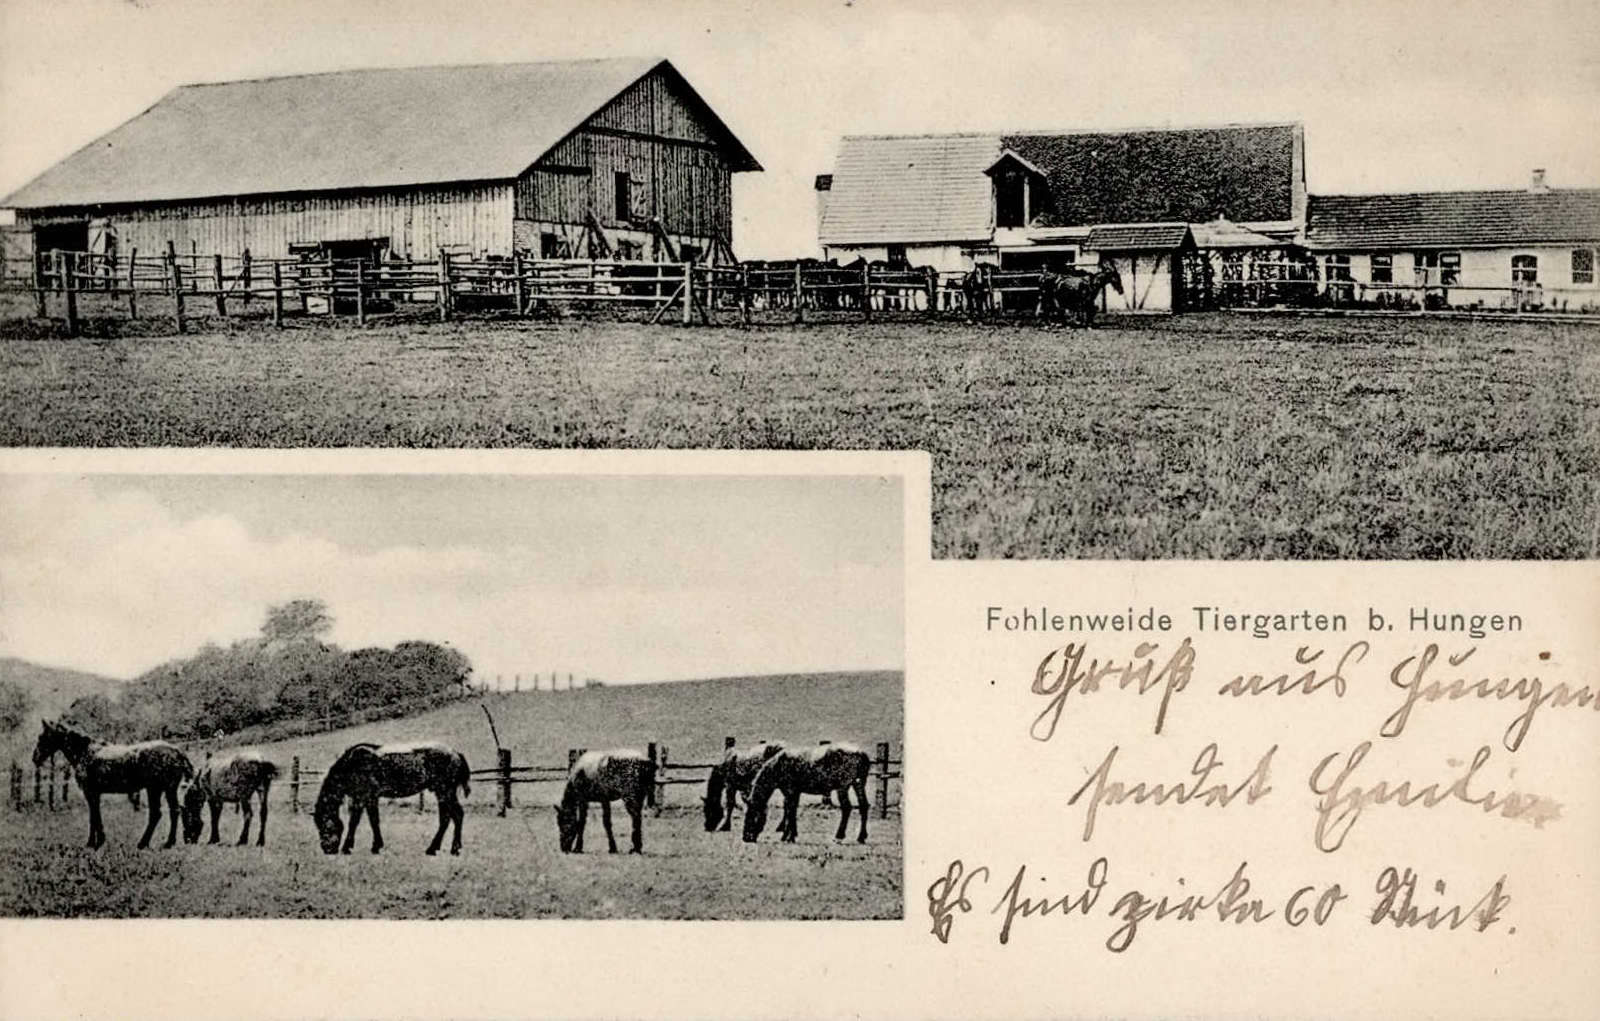 Fohlenweide Tiergarten b. Hungen
Gruß aus Hungen
sendet Emilie
Es sind zirka 60 Stück.